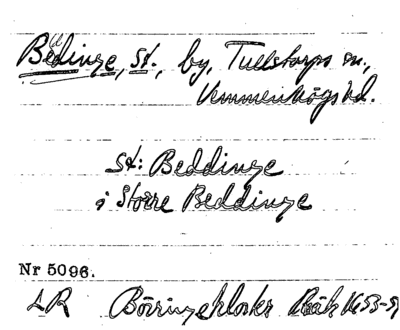 Beddinge, St., by, Tullstorps sn.,
Vemmenhögs hd.
St: Beddinge
i Storre Beddinge
Nr 5096.
LR Börringekloster Räk 1653-9